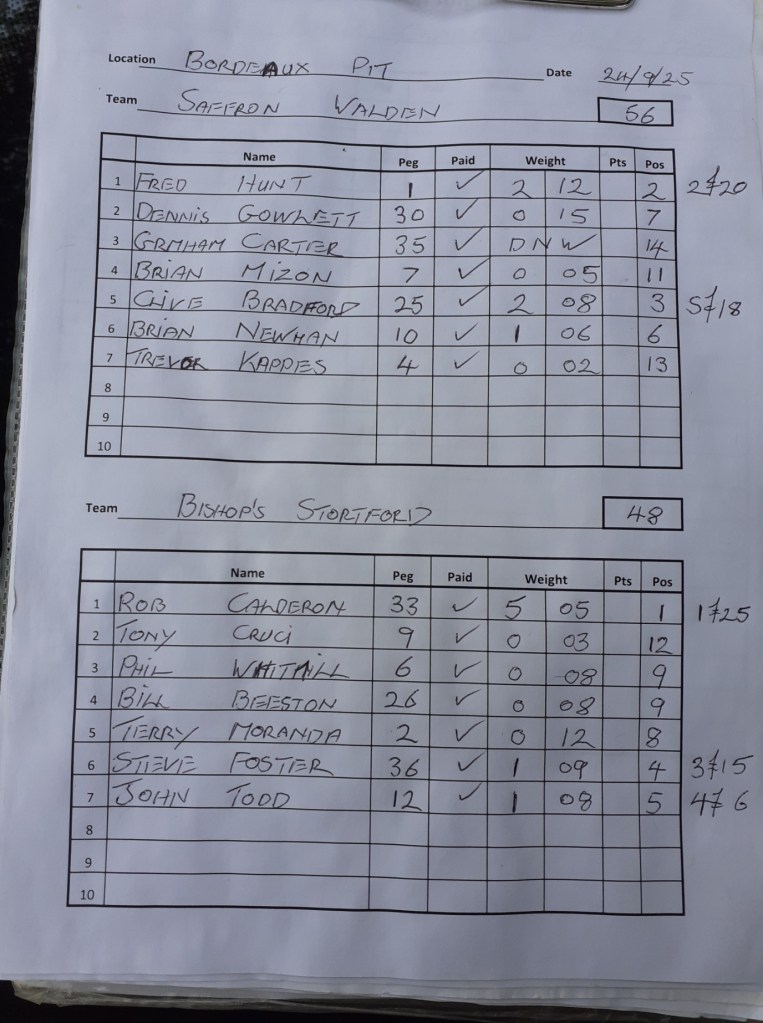 Location BORDEAUX PIT Date 24/9/25
Team SAFFRON WALDEN 56
Name Peg Paid Weight Pts Pos
1 FRED HUNT 1 ✓ 2 12 2 2 £20
2 DENNIS GOWLETT 30 ✓ 0 15 7
3 GRAHAM CARTER 35 ✓ DNW 14
4 BRIAN MIZON 7 ✓ 0 05 11
5 CLIVE BRADFORD 25 ✓ 2 08 3 5 £18
6 BRIAN NEWMAN 10 ✓ 1 06 6
7 TREVOR KAPPES 4 ✓ 0 02 13
8
9
10
Team BISHOP'S STORTFORD 48
Name Peg Paid Weight Pts Pos
1 ROB CALDERON 33 ✓ 5 05 1 1 £25
2 TONY CRUCI 9 ✓ 0 03 12
3 PHIL WHITNILL 6 ✓ 0 08 9
4 BILL BEESTON 26 ✓ 0 08 9
5 TERRY MORANDA 2 ✓ 0 12 8
6 STEVE FOSTER 36 ✓ 1 09 4 3 £15
7 JOHN TODD 12 ✓ 1 08 5 4 £6
8
9
10